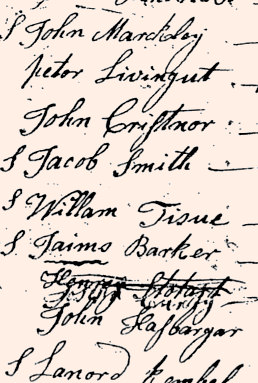 S John Marckley
petor Livingut
John Cristnor
S Jacob Smith
S Willam Tissue
S Jaims Barker
Henry Stotart
John Hasbargar
S Lanord